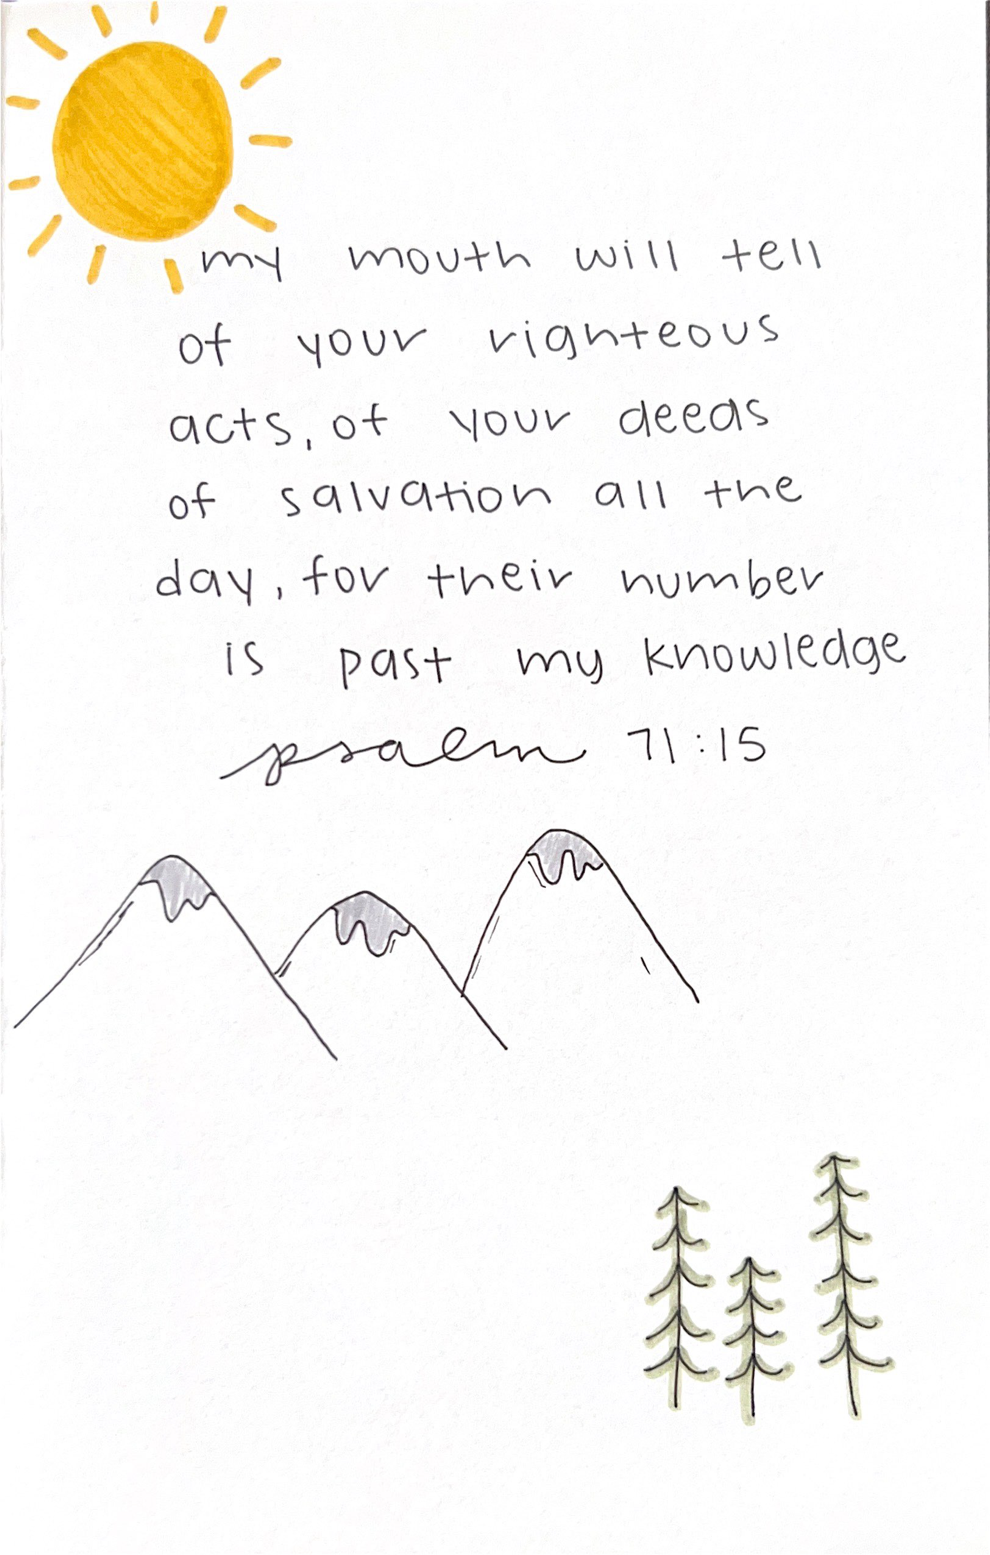 my mouth will tell
of your righteous
acts, of your deeds
of salvation all the
day, for their number
is past my knowledge
psalm 71:15